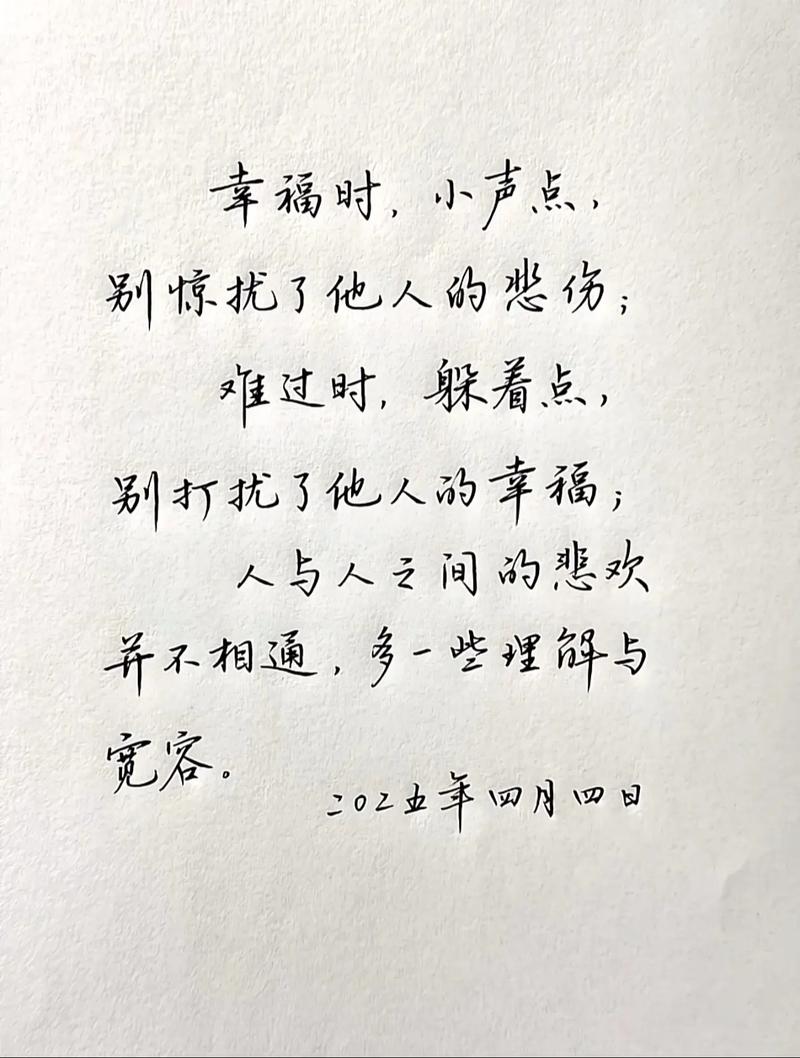 幸福时，小声点，
别惊扰了他人的悲伤；
难过时，躲着点，
别打扰了他人的幸福；
人与人之间的悲欢
并不相通，多一些理解与
宽容。
二〇二五年四月四日